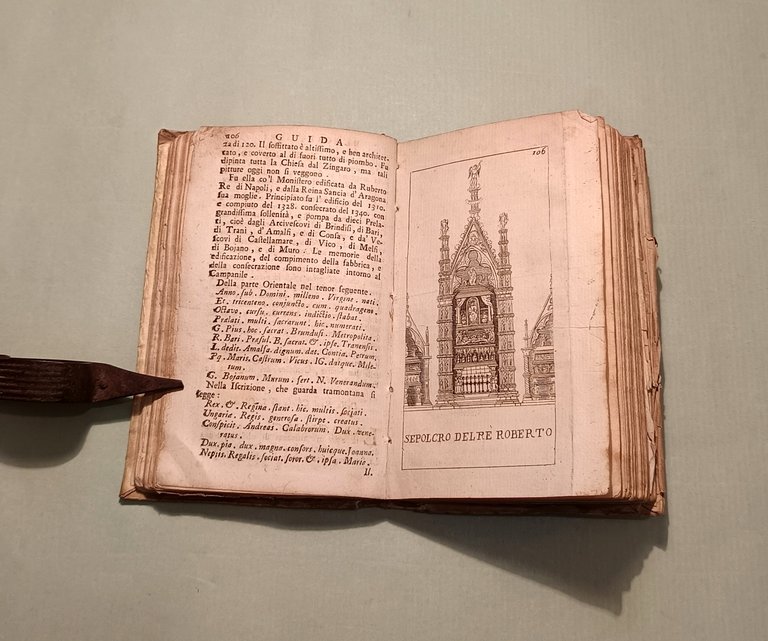 206 GUIDA
za di 120. Il soffittato è altissimo, e ben architet-
tato, e coverto al di fuori tutto di piombo. Fu
dipinta tutta la Chiesa dal Zingaro, ma tali
pitture oggi non si veggono.
Fu ella co'l Monistero edificata da Ruberto
Re di Napoli, e dalla Reina Sancia d'Aragona
sua moglie. Principiato fu l'edificio del 1310.
e compiuto del 1328. consecrato del 1340. con
grandissima sollenità, e pompa da dieci Prela-
ti, cioè dagli Arcivescovi di Brindisi, di Bari,
di Trani, d'Amalfi, e di Consa, e da' Ve-
scovi di Castellamare, di Vico, di Melfi,
di Bojano, e di Muro. Le memorie della
edificazione, del compimento della fabbrica, e
della consecrazione sono intagliate intorno al
Campanile.
Della parte Orientale nel tenor seguente.
Anno. sub. Domini. milleno. Virgine. nati.
Et. tricenteno. conjuncto. cum. quadrageno.
Octavo. cursu. currens. indictio. stabat.
Prælati. multi. sacrarunt. hic. numerati.
G. Pius. hoc. sacrat. Brundusi. Metropolita.
R. Bari. Præsul. B. sacrat. &. ipse. Tranensis.
L. dedit. Amalfa. dignum. dat. Contia. Petrum.
Pq. Maris. Castrum. Vicus. IG. datque. Mile-
tum.
G. Bojanum. Murum. fert. N. Venerandum.
Nella Iscrizione, che guarda tramontana si
legge:
Rex. &. Regina. stant. hic. multis. sociati.
Ungariæ. Regis. generosa. stirpe. creatus.
Conspicit. Andreas. Calabrorum. Dux. vene-
ratus.
Dux. pia. dux. magna. consors. huicque. Joanna.
Neptis. Regalis. sociat. soror. &. ipsa. Maria.
Il.
106
SEPOLCRO DEL RÈ ROBERTO